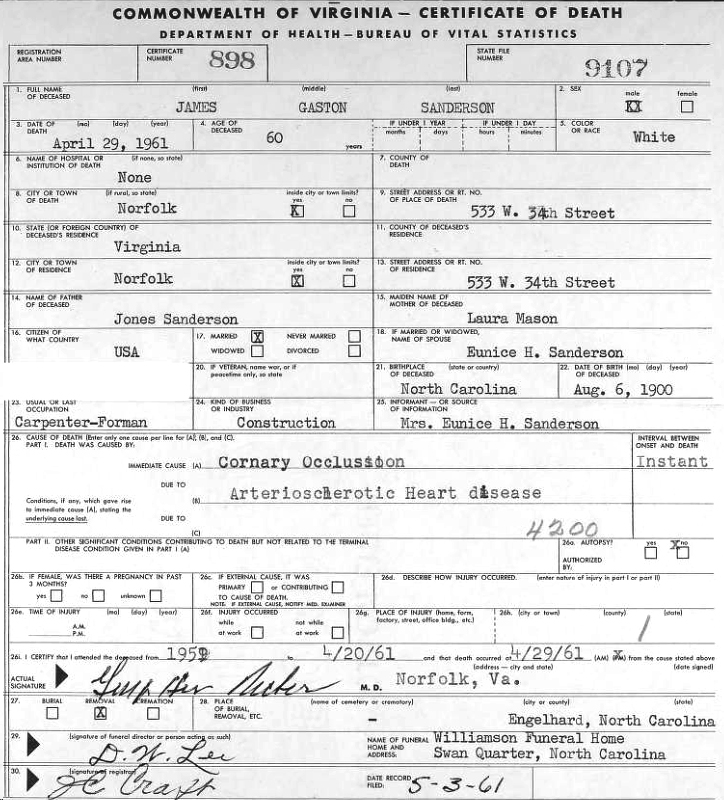 COMMONWEALTH OF VIRGINIA — CERTIFICATE OF DEATH
DEPARTMENT OF HEALTH — BUREAU OF VITAL STATISTICS
REGISTRATION AREA NUMBER
CERTIFICATE NUMBER 898
STATE FILE NUMBER 9107
1. FULL NAME OF DECEASED (first) (middle) (last)
JAMES GASTON SANDERSON
2. SEX male XX female
3. DATE OF DEATH (mo) (day) (year)
April 29, 1961
4. AGE OF DECEASED 60 years
IF UNDER 1 YEAR months days
IF UNDER 1 DAY hours minutes
5. COLOR OR RACE White
6. NAME OF HOSPITAL OR INSTITUTION OF DEATH (if none, so state)
None
7. COUNTY OF DEATH
8. CITY OR TOWN OF DEATH (if rural, so state)
Norfolk
inside city or town limits? yes X no
9. STREET ADDRESS OR RT. NO. OF PLACE OF DEATH
533 W. 34th Street
10. STATE (OR FOREIGN COUNTRY) OF DECEASED'S RESIDENCE
Virginia
11. COUNTY OF DECEASED'S RESIDENCE
12. CITY OR TOWN OF RESIDENCE
Norfolk
inside city or town limits? yes X no
13. STREET ADDRESS OR RT. NO. OF RESIDENCE
533 W. 34th Street
14. NAME OF FATHER OF DECEASED
Jones Sanderson
15. MAIDEN NAME OF MOTHER OF DECEASED
Laura Mason
16. CITIZEN OF WHAT COUNTRY
USA
17. MARRIED X NEVER MARRIED
WIDOWED DIVORCED
18. IF MARRIED OR WIDOWED, NAME OF SPOUSE
Eunice H. Sanderson
20. IF VETERAN, name war, or if peacetime only, so state
21. BIRTHPLACE OF DECEASED (state or country)
North Carolina
22. DATE OF BIRTH (mo) (day) (year) OF DECEASED
Aug. 6, 1900
23. USUAL OR LAST OCCUPATION
Carpenter-Forman
24. KIND OF BUSINESS OR INDUSTRY
Construction
25. INFORMANT — OR SOURCE OF INFORMATION
Mrs. Eunice H. Sanderson
26. CAUSE OF DEATH (Enter only one cause per line for (A), (B), and (C).
PART I. DEATH WAS CAUSED BY:
INTERVAL BETWEEN ONSET AND DEATH
IMMEDIATE CAUSE (A) Cornary Occlussion
Instant
DUE TO
(B) Arteriosclerotic Heart disease
Conditions, if any, which gave rise to immediate cause (A), stating the underlying cause last.
DUE TO
(C)
4200
PART II. OTHER SIGNIFICANT CONDITIONS CONTRIBUTING TO DEATH BUT NOT RELATED TO THE TERMINAL DISEASE CONDITION GIVEN IN PART I (A)
26a. AUTOPSY? yes no X
AUTHORIZED BY:
26b. IF FEMALE, WAS THERE A PREGNANCY IN PAST 3 MONTHS?
yes no unknown
26c. IF EXTERNAL CAUSE, IT WAS
PRIMARY or CONTRIBUTING
TO CAUSE OF DEATH.
NOTE: IF EXTERNAL CAUSE, NOTIFY MED. EXAMINER
26d. DESCRIBE HOW INJURY OCCURRED. (enter nature of injury in part I or part II)
26e. TIME OF INJURY (mo) (day) (year)
A.M.
P.M.
26f. INJURY OCCURRED
while at work not while at work
26g. PLACE OF INJURY (home, farm, factory, street, office bldg., etc.)
26h. (city or town) (county) (state)
26i. I CERTIFY that I attended the deceased from 1959 to 4/20/61 and that death occurred at 4/29/61 (AM) (PM) from the cause stated above
(address — city and state) (date signed)
ACTUAL SIGNATURE
M. D. Norfolk, Va.
27. BURIAL REMOVAL X CREMATION
28. PLACE OF BURIAL, REMOVAL, ETC. (name of cemetery or crematory) (city or county) (state)
– Engelhard, North Carolina
29. (signature of funeral director or person acting as such)
D. W. Lee
NAME OF FUNERAL HOME AND ADDRESS: Williamson Funeral Home
Swan Quarter, North Carolina
30. (signature of registrar)
JC Craft
DATE RECORD FILED: 5-3-61